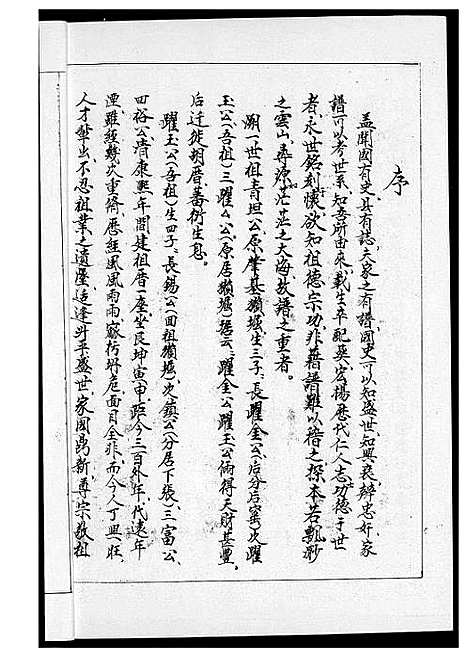 序
盖闻國有史,县有誌,夫家之有譜,國史可以知盛世,知興衰,辨忠奸,家
譜可以考世系,知吾所由來,載生卒配葬,宏揚歷代仁人志功德于世
者,永世銘刻懷,欲知祖德宗功,非藉譜難以稽之,探本若飄渺
之雲山,尋源茫茫之大海,故譜之重者。
溯一世祖青坦公,原肇基獺堀,生三子:長躍金公,后分后窰,次躍
玉公(吾祖)三躍厶公,原居獺堀,據云:躍金公躍玉公俩得天財甚豐,
后迁徙胡厝蕃衍生息。
躍玉公(吾祖)生四子:長錫公(四祖獺堀)次鎮公(分居下張)三富公、
四裕公,清康熙年間建祖厝一座,坐艮坤寅(申)距今三百外年,代遠年
湮,雖經幾次重脩,歷經風風雨雨,家朽坍危,面目全非,而今人丁興旺,
人才輩出,不忍祖業之遺墜,适逢升平盛世,家國昌新,尊宗敬祖